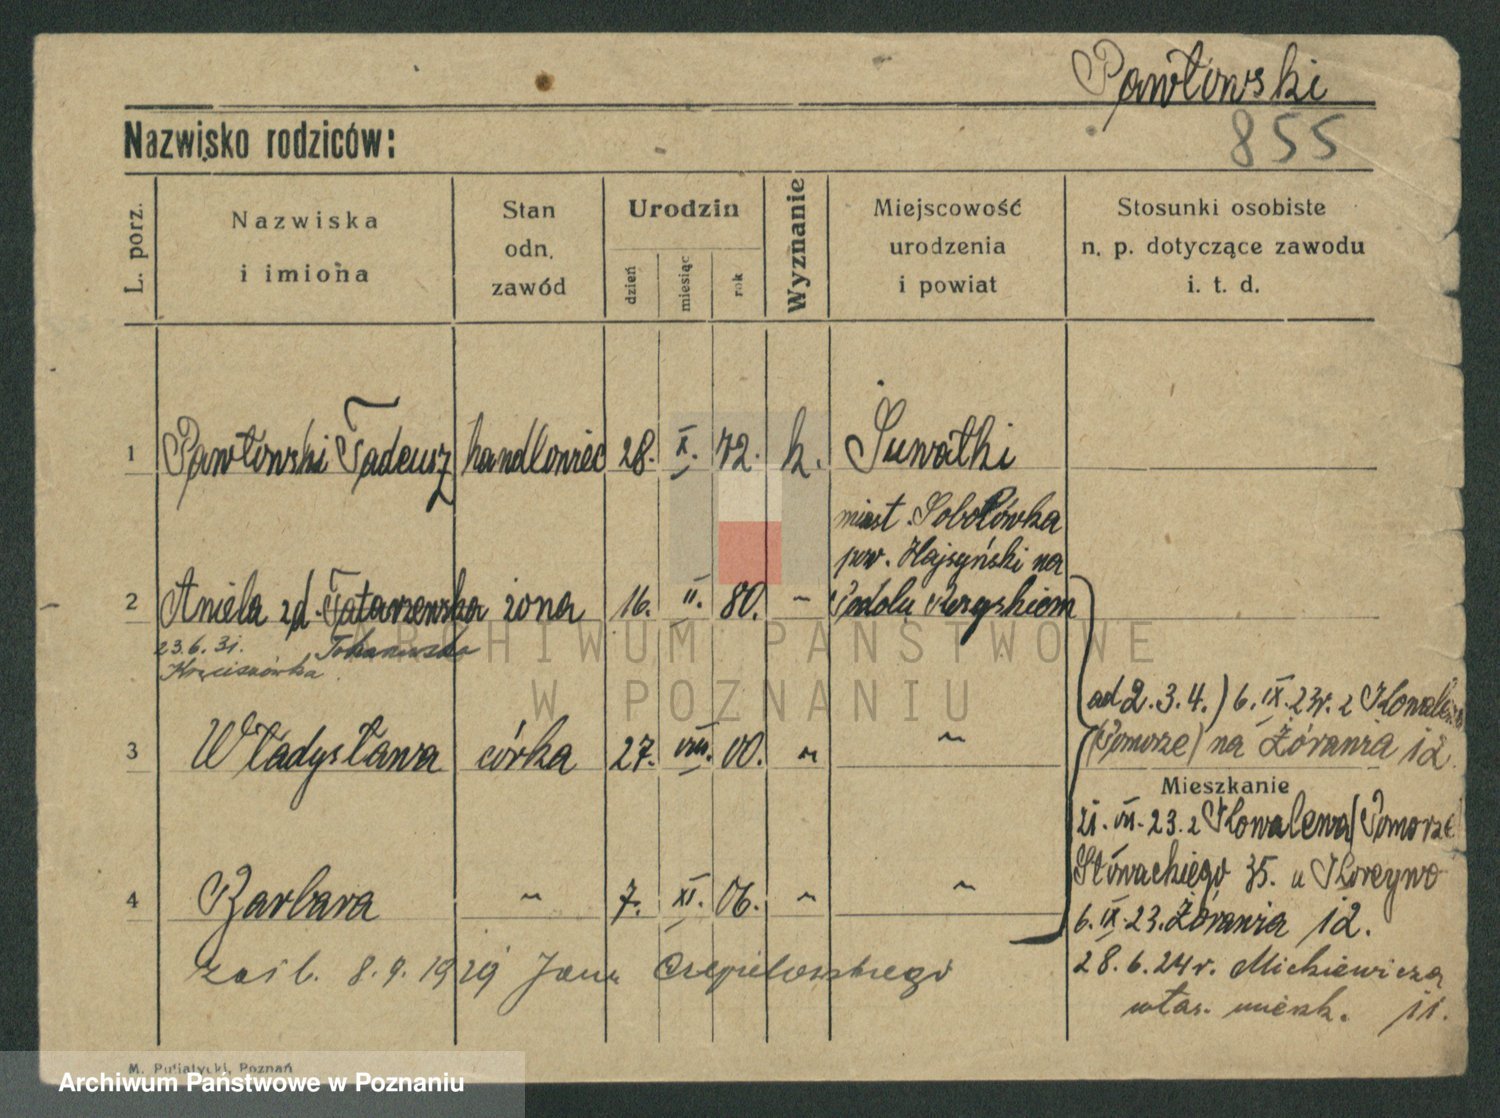 Pawłowski
855
Nazwisko rodziców:
L. porz.
Nazwiska
i imiona
Stan
odn.
zawód
Urodzin
dzień
miesiąc
rok
Wyznanie
Miejscowość
urodzenia
i powiat
Stosunki osobiste
n. p. dotyczące zawodu
i. t. d.
1 Pawłowski Tadeusz handlowiec 28. X. 72. k. Suwałki
miast. Sobolówka
pow. Hajsyński na
2 Aniela zd. Tatarzewska żona 16. II. 80. " Podolu
23.6.31.
ad 2. 3. 4.) 6. IX. 23r. z Kowalewa
3 Władysława córka 27. VIII. 00. " " (Pomorze) na Żórawia 12
Mieszkanie
21. VII. 23. z Kowalewa (Pomorze)
Słowackiego 35. u
4 Barbara " 7. XI. 06. " "
6. IX. 23. Żórawia 12.
zaśl. 8.9.1929 Jana
28. 6. 24r. Mickiewicza
włas. mieszk. 11.
M. Puljatycki, Poznań
ARCHIWUM PAŃSTWOWE
W POZNANIU
Archiwum Państwowe w Poznaniu